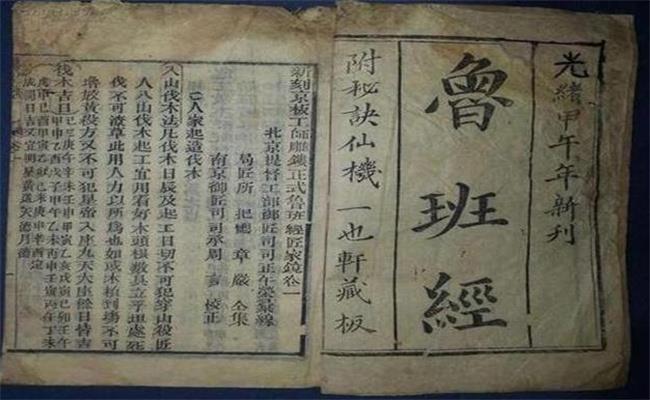 光緒甲午年新刊
魯班經
附秘訣仙機 一也軒藏板
新刻京板工師雕鏤正式魯班經匠家鏡卷一
北京提督工部御匠司司正午榮彙編
局匠所把總章嚴仝集
南京御匠司司承周言校正
○人家起造伐木
入山伐木法凡伐木日辰及起工日切不可犯穿山殺匠
人入山伐木起工宜用看好木頭根數具立平坦處斫
伐不可潦草此用人力以所為也如或木植到塲不可
堆放黃殺方又不可犯皇帝八座九天大座餘日皆吉
伐木吉日己巳庚午辛未壬申
成開日吉又宜明星黃道天德月德